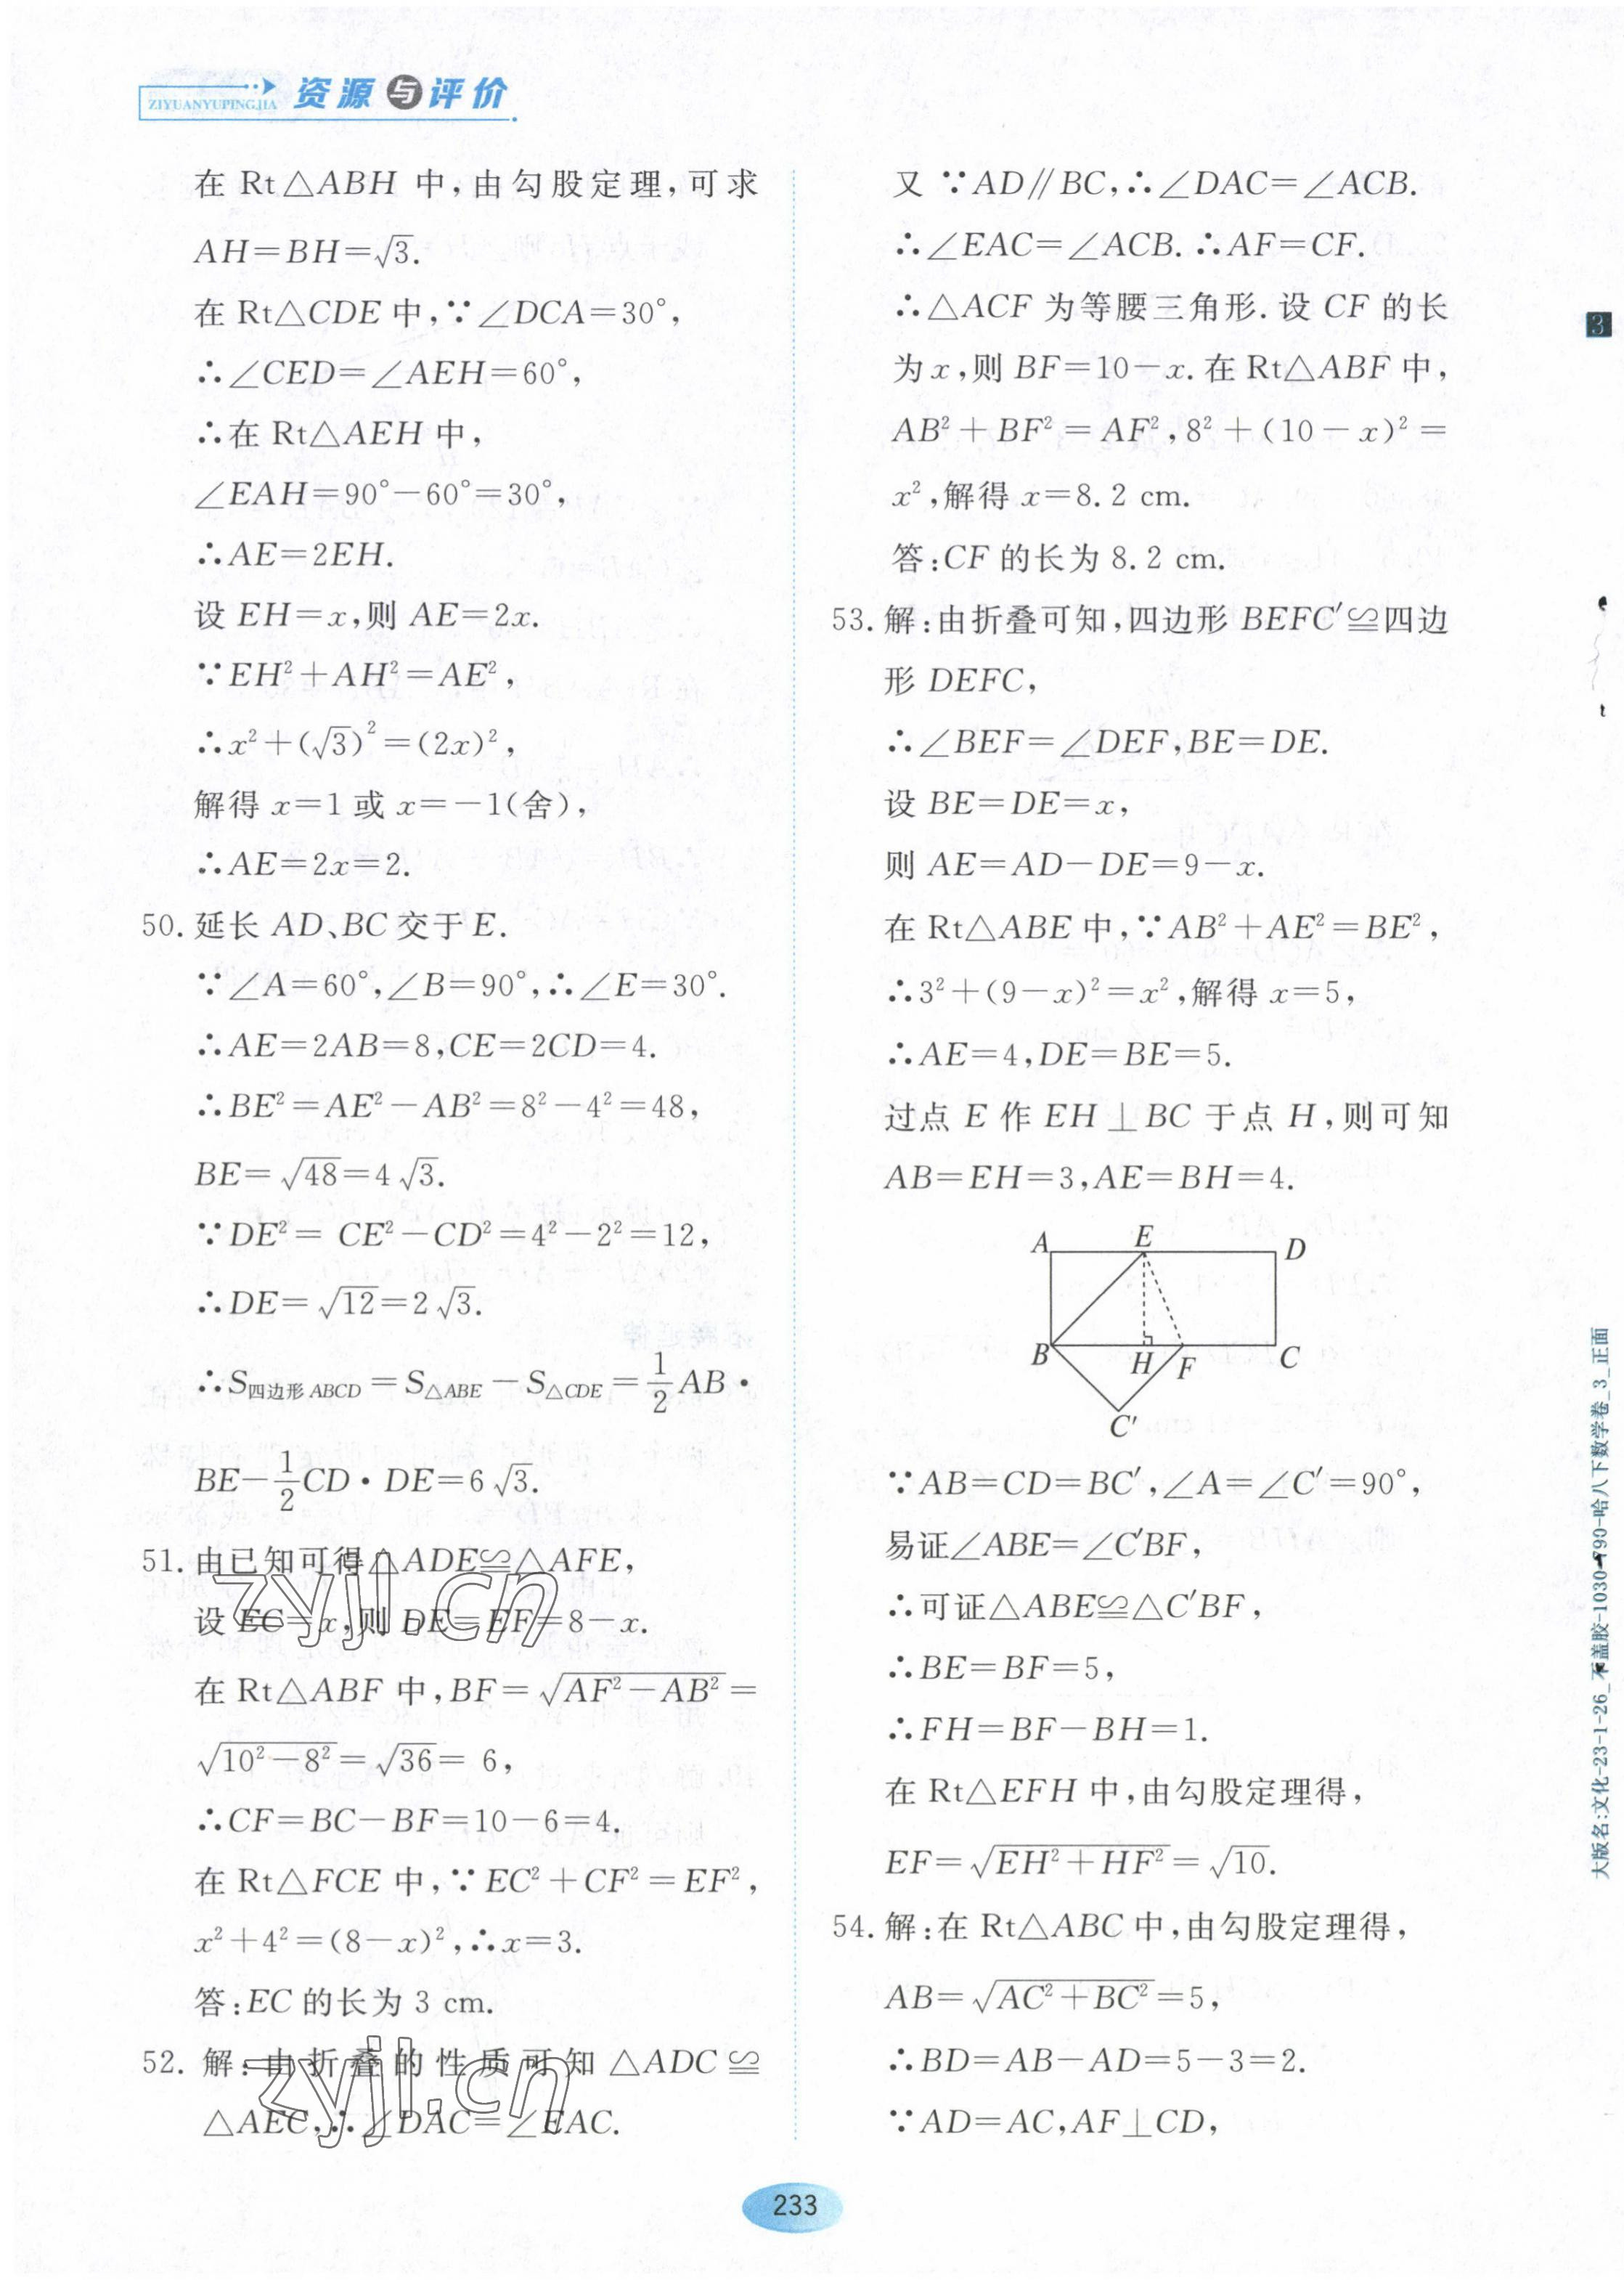 ZIYUANYUPINGJIA 资源与评价
在 Rt△ABH 中,由勾股定理,可求
AH=BH=√3.
在 Rt△CDE 中,∵∠DCA=30°,
∴∠CED=∠AEH=60°,
∴在 Rt△AEH 中,
∠EAH=90°-60°=30°,
∴AE=2EH.
设 EH=x,则 AE=2x.
∵EH²+AH²=AE²,
∴x²+(√3)²=(2x)²,
解得 x=1 或 x=-1(舍),
∴AE=2x=2.
50. 延长 AD、BC 交于 E.
∵∠A=60°,∠B=90°,∴∠E=30°.
∴AE=2AB=8,CE=2CD=4.
∴BE²=AE²-AB²=8²-4²=48,
BE=√48=4√3.
∵DE²= CE²-CD²=4²-2²=12,
∴DE=√12=2√3.
∴S四边形ABCD=S△ABE-S△CDE=1/2AB·
BE-1/2CD·DE=6√3.
51. 由已知可得△ADE≌△AFE,
设 EC=x,则 DE=EF=8-x.
在 Rt△ABF 中,BF=√(AF²-AB²)=
√(10²-8²)=√36= 6,
∴CF=BC-BF=10-6=4.
在 Rt△FCE 中,∵EC²+CF²=EF²,
x²+4²=(8-x)²,∴x=3.
答:EC 的长为 3 cm.
52. 解:由折叠的性质可知△ADC≌
△AEC,∴∠DAC=∠EAC.
又∵AD∥BC,∴∠DAC=∠ACB.
∴∠EAC=∠ACB.∴AF=CF.
∴△ACF 为等腰三角形.设 CF 的长
为 x,则 BF=10-x.在 Rt△ABF 中,
AB²+BF²=AF²,8²+(10-x)²=
x²,解得 x=8.2 cm.
答:CF 的长为 8.2 cm.
53. 解:由折叠可知,四边形 BEFC′≌四边
形 DEFC,
∴∠BEF=∠DEF,BE=DE.
设 BE=DE=x,
则 AE=AD-DE=9-x.
在 Rt△ABE 中,∵AB²+AE²=BE²,
∴3²+(9-x)²=x²,解得 x=5,
∴AE=4,DE=BE=5.
过点 E 作 EH⊥BC 于点 H,则可知
AB=EH=3,AE=BH=4.
A E D
B H F C
C′
∵AB=CD=BC′,∠A=∠C′=90°,
易证∠ABE=∠C′BF,
∴可证△ABE≌△C′BF,
∴BE=BF=5,
∴FH=BF-BH=1.
在 Rt△EFH 中,由勾股定理得,
EF=√(EH²+HF²)=√10.
54. 解:在 Rt△ABC 中,由勾股定理得,
AB=√(AC²+BC²)=5,
∴BD=AB-AD=5-3=2.
∵AD=AC,AF⊥CD,
233
3
zyjl.cn
zyjl.cn